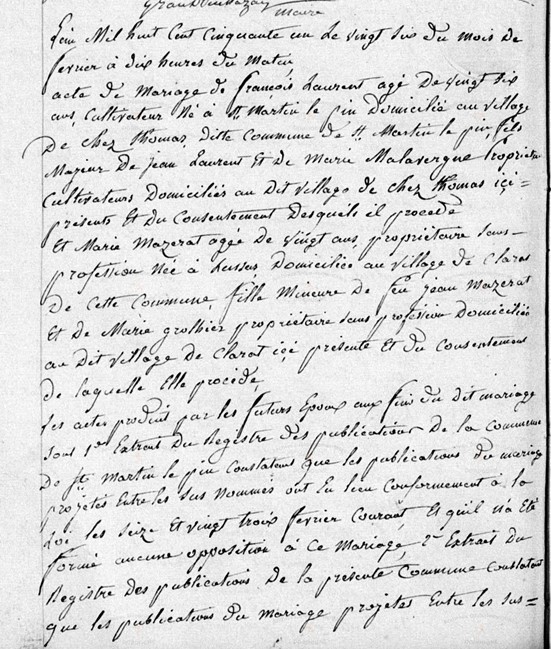 maire
L'an Mil huit Cent Cinquante un Le vingt six du mois de
fevrier à dix heures du Matin
acte de Mariage de françois Laurent agé De vingt six
ans, Cultivateur Né à St. Martin le pin Domicilié au village
De chez thomas, ditte Commune de St. Martin le pin, fils
Majeur De Jean Laurent Et de Marie Malavergne
Cultivateurs Domiciliés au Dit village de chez thomas içi =
présents Et du Consentement Desquels il procede
Et Marie Mazerat agée De vingt ans, propriétaire sans –
profession Née à Lussas, Domiciliée au village De Claras
De Cette Commune fille Mineure De feu jean Mazerat
Et De Marie propriétaire sans profession Domiciliée
au Dit village De Clarat içi présente Et du Consentement
de laquelle Elle procède,
Les actes produit par les futurs Epoux aux fins du dit mariage
sont 1er Extrait Du Registre des publications De la Commune
De St. Martin le pin Constatant que les publications du mariage
projétés Entre les sus Nommés ont Eu lieu Conformement à la
Loi les seize Et vingt trois fevrier Courant Et qu'il n'a Eté
formé aucune opposition à Ce Mariage, 2e Extrait Du
Registre Des publications De la présente Commune Constatant
que les publications du Mariage projetés Entre les sus =